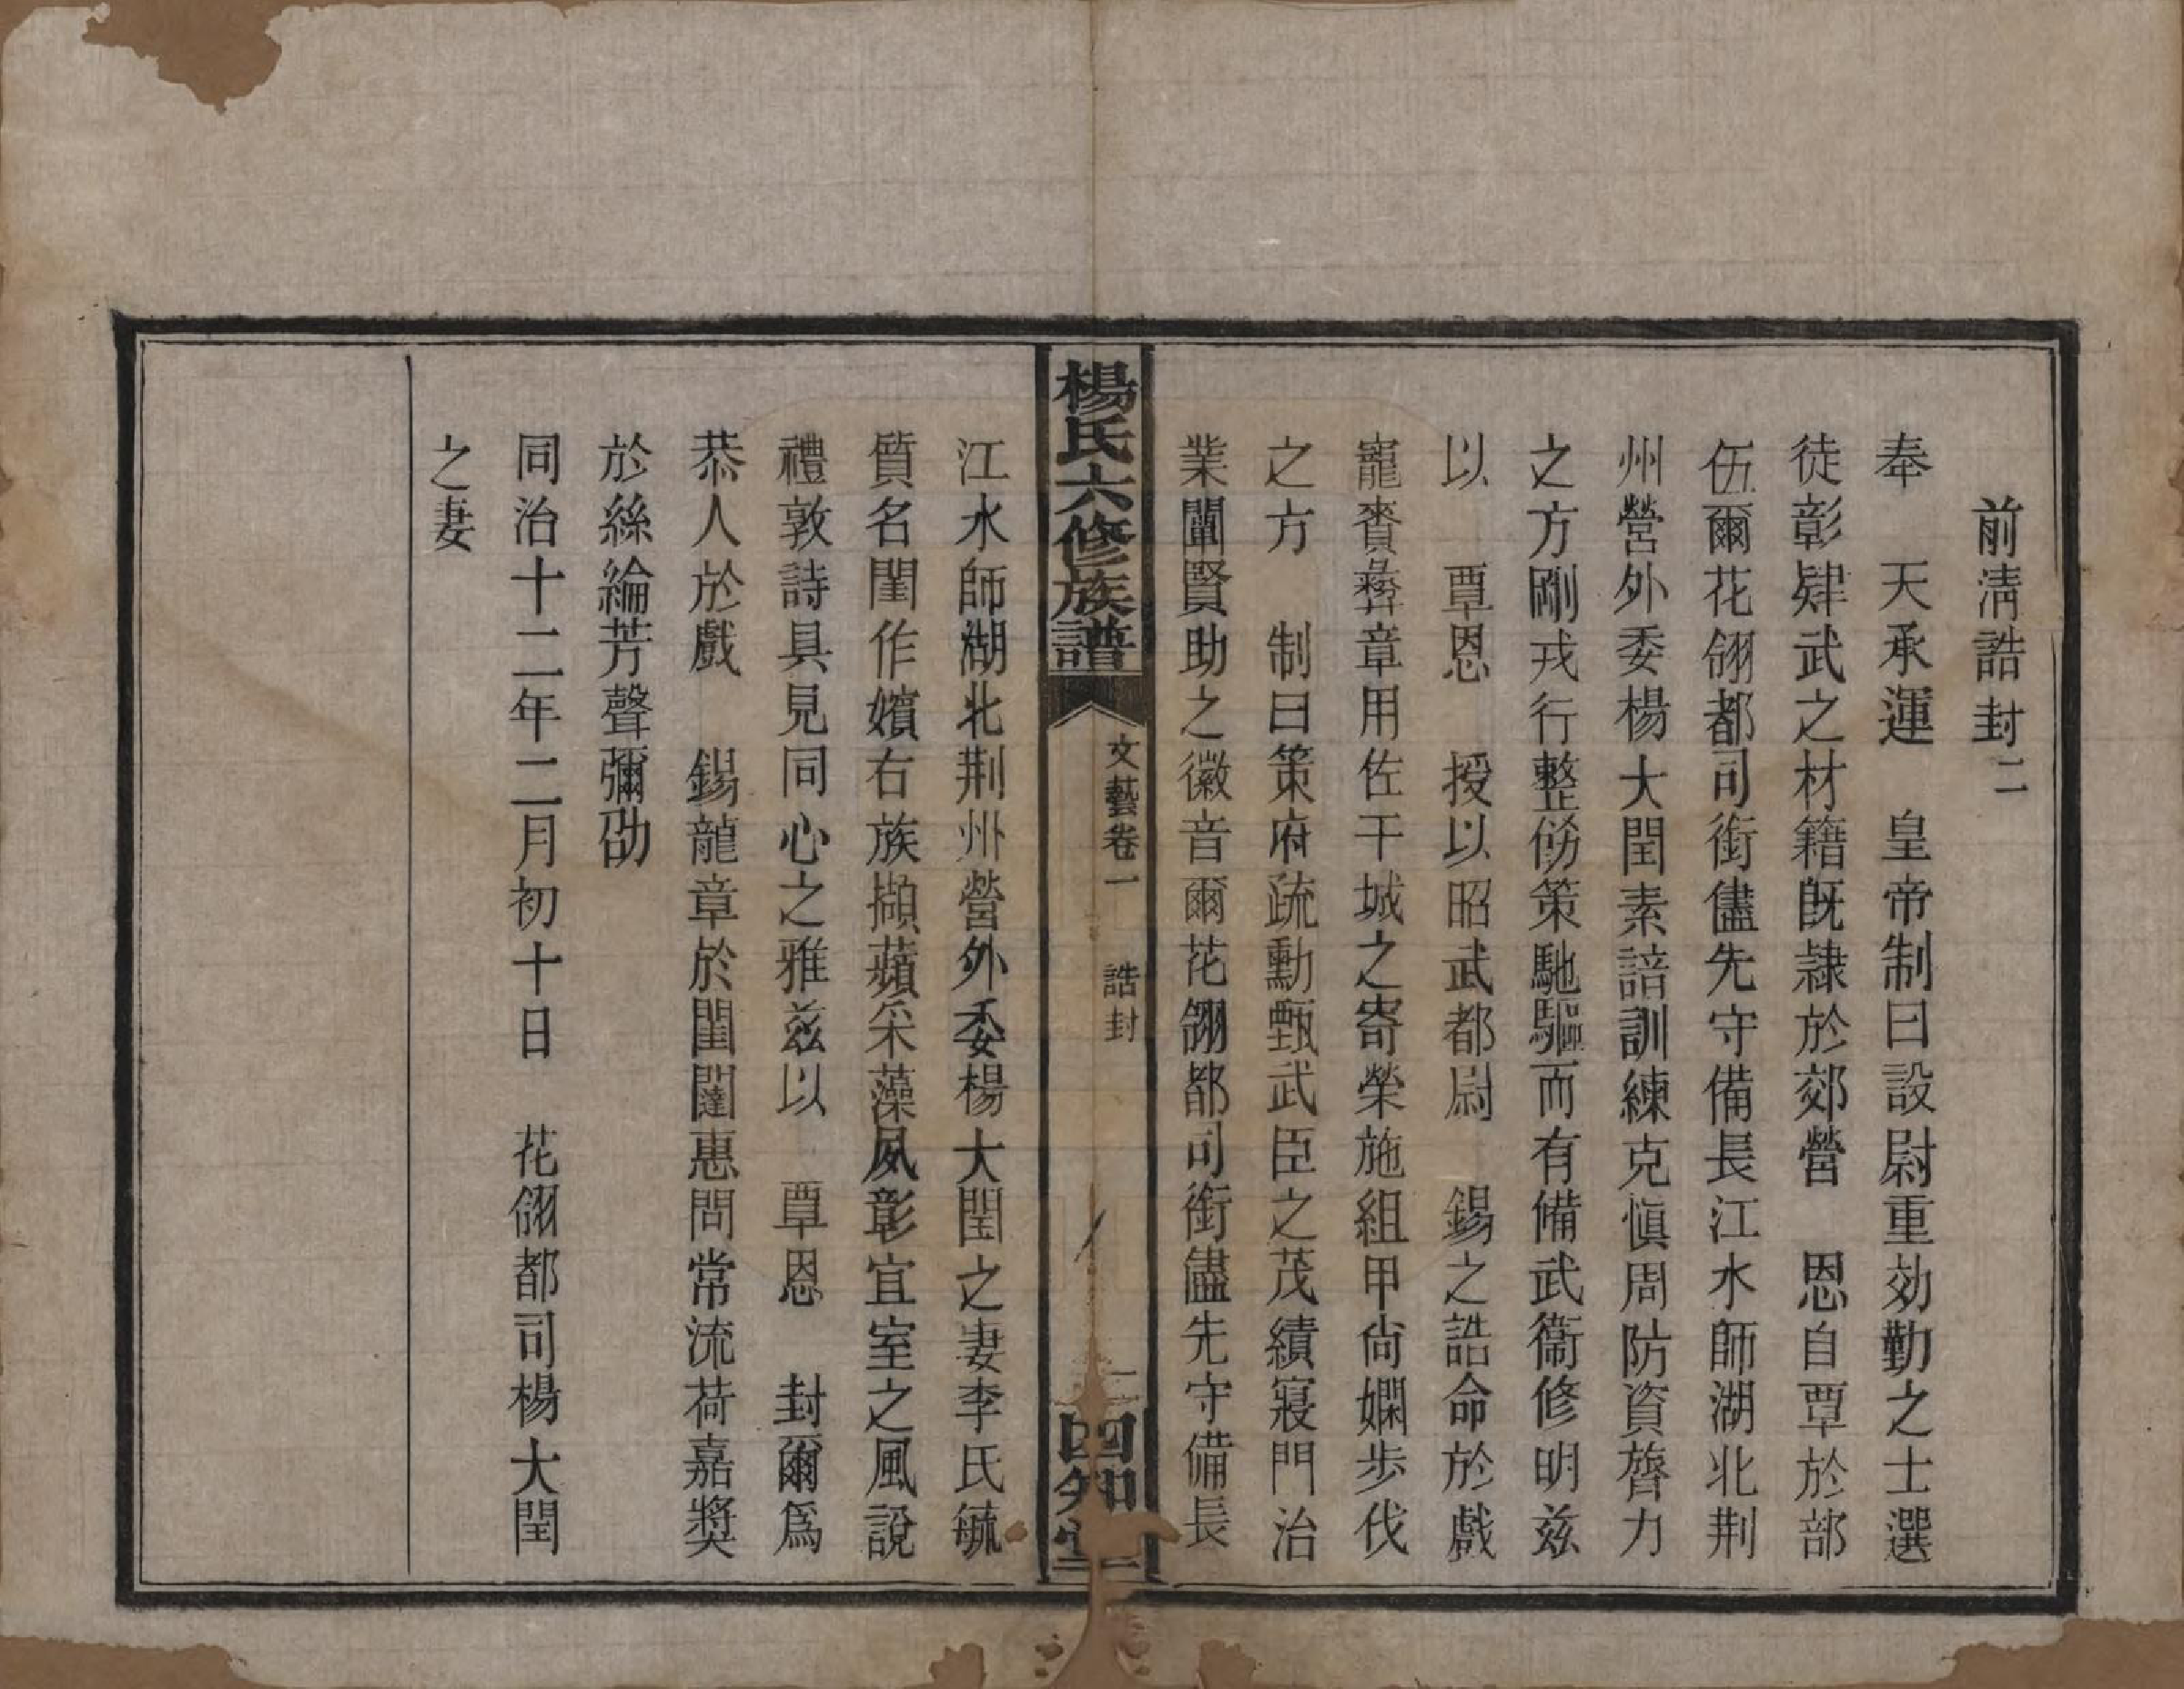 前淸誥封二
奉　天承運　皇帝制曰設尉重効勤之士選
徒彰肄武之材籍旣隷於郊營　恩自覃於部
伍爾花翎都司銜儘先守備長江水師湖北荆
州營外委楊大閏素諳訓練克愼周防資膂力
之方剛戎行整飭策馳驅而有備武衞修明茲
以　覃恩　授以昭武都尉　錫之誥命於戲
寵賚彝章用佐干城之寄榮施組甲尙嫻步伐
之方　制曰策府疏勳甄武臣之茂績寢門治
業闡賢助之徽音爾花翎都司銜儘先守備長
楊氏六修族譜　文藝卷一　誥封　四知堂
江水師湖北荆州營外委楊大閏之妻李氏毓
質名閨作嬪右族擷蘋采藻夙彰宜室之風說
禮敦詩具見同心之雅茲以　覃恩　封爾爲
恭人於戲　錫龍章於閨闥惠問常流荷嘉獎
於絲綸芳聲彌劭
同治十二年二月初十日　花翎都司楊大閏
之妻